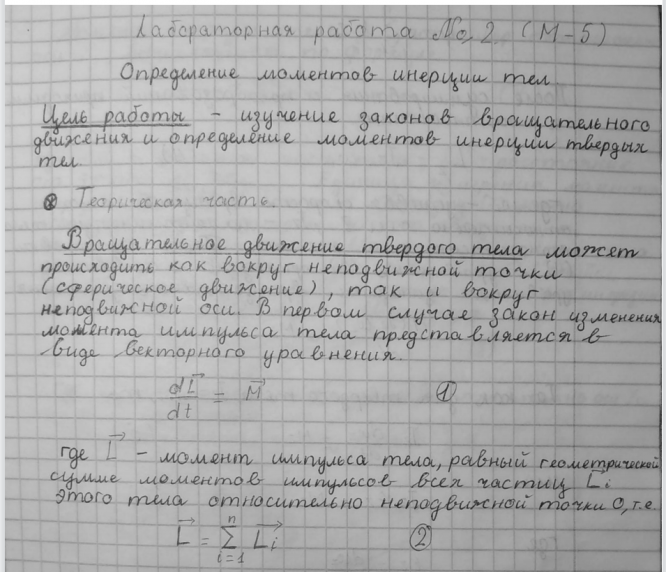 Лабораторная работа №2 (М-5)
Определение моментов инерции тел
Цель работы - изучение законов вращательного
движения и определение моментов инерции твердых
тел.
Теорическая часть.
Вращательное движение твердого тела может
происходить как вокруг неподвижной точки
(сферическое движение), так и вокруг
неподвижной оси. В первом случае закон изменения
момента импульса тела представляется в
виде векторного уравнения.
dL⃗/dt = M⃗ (1)
где L⃗ - момент импульса тела, равный геометрической
сумме моментов импульсов всех частиц L⃗i
этого тела относительно неподвижной точки О, т.е.
L⃗ = ∑ⁿᵢ₌₁ L⃗i (2)